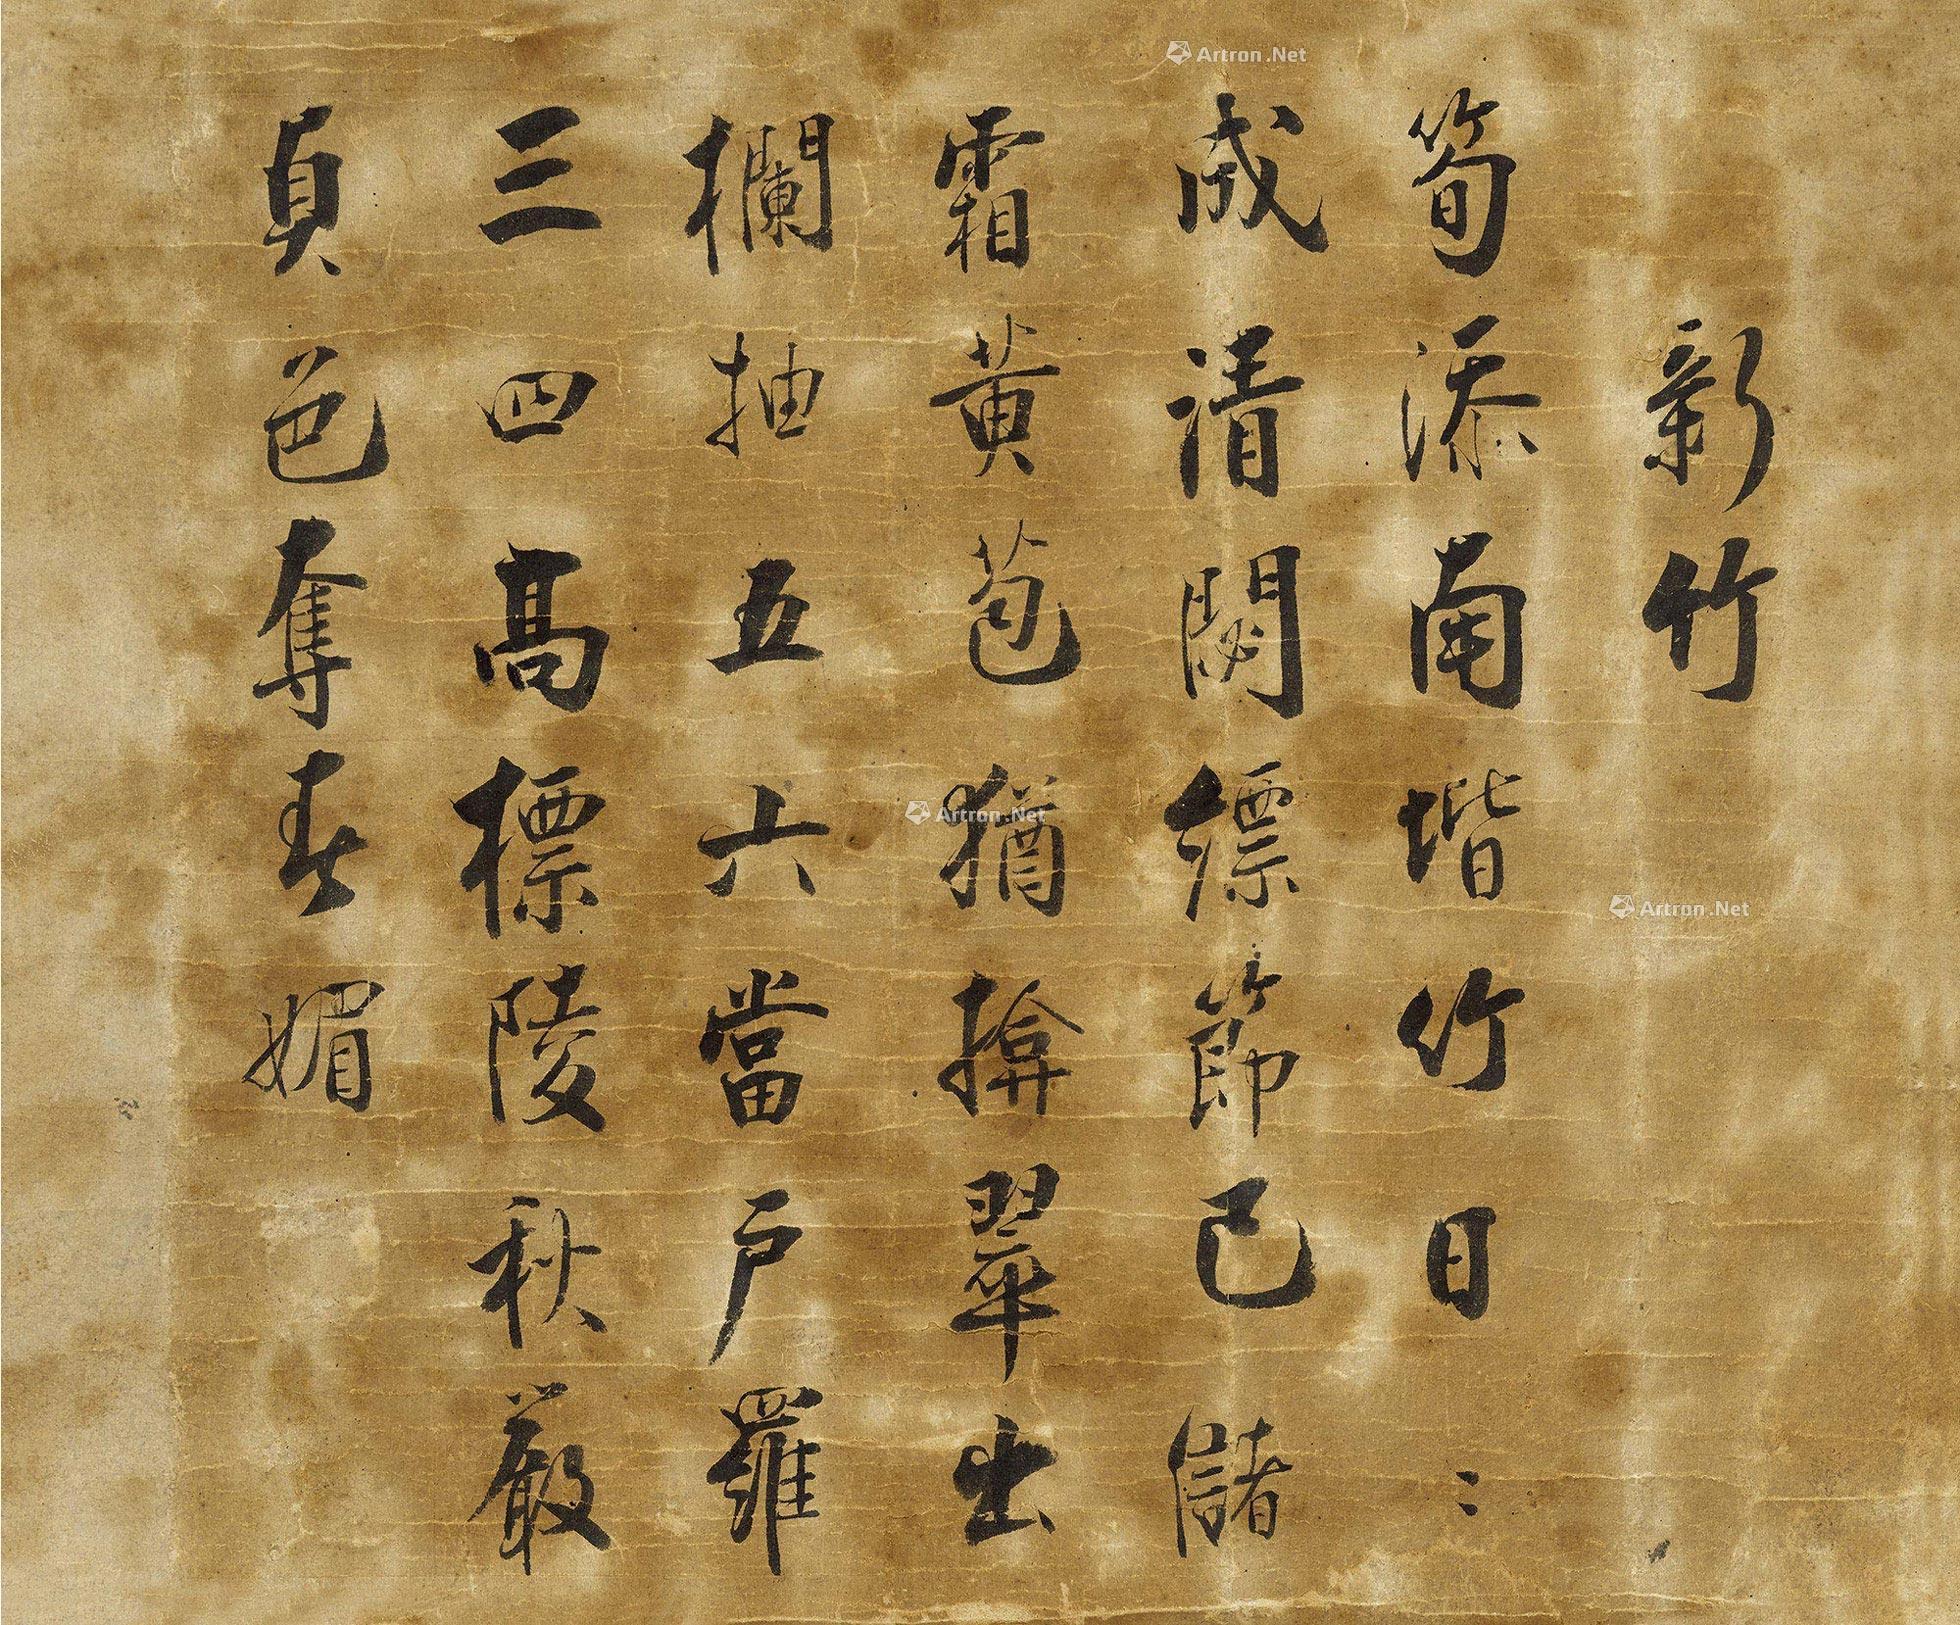 新竹
筍添南堦竹日〻
成清閟縹節已儲
霜黃苞猶揜翠出
欄抽五六當戶羅
三四高標陵秋嚴
貞色奪春媚
Artron.Net
Artron.Net
Artron.Net